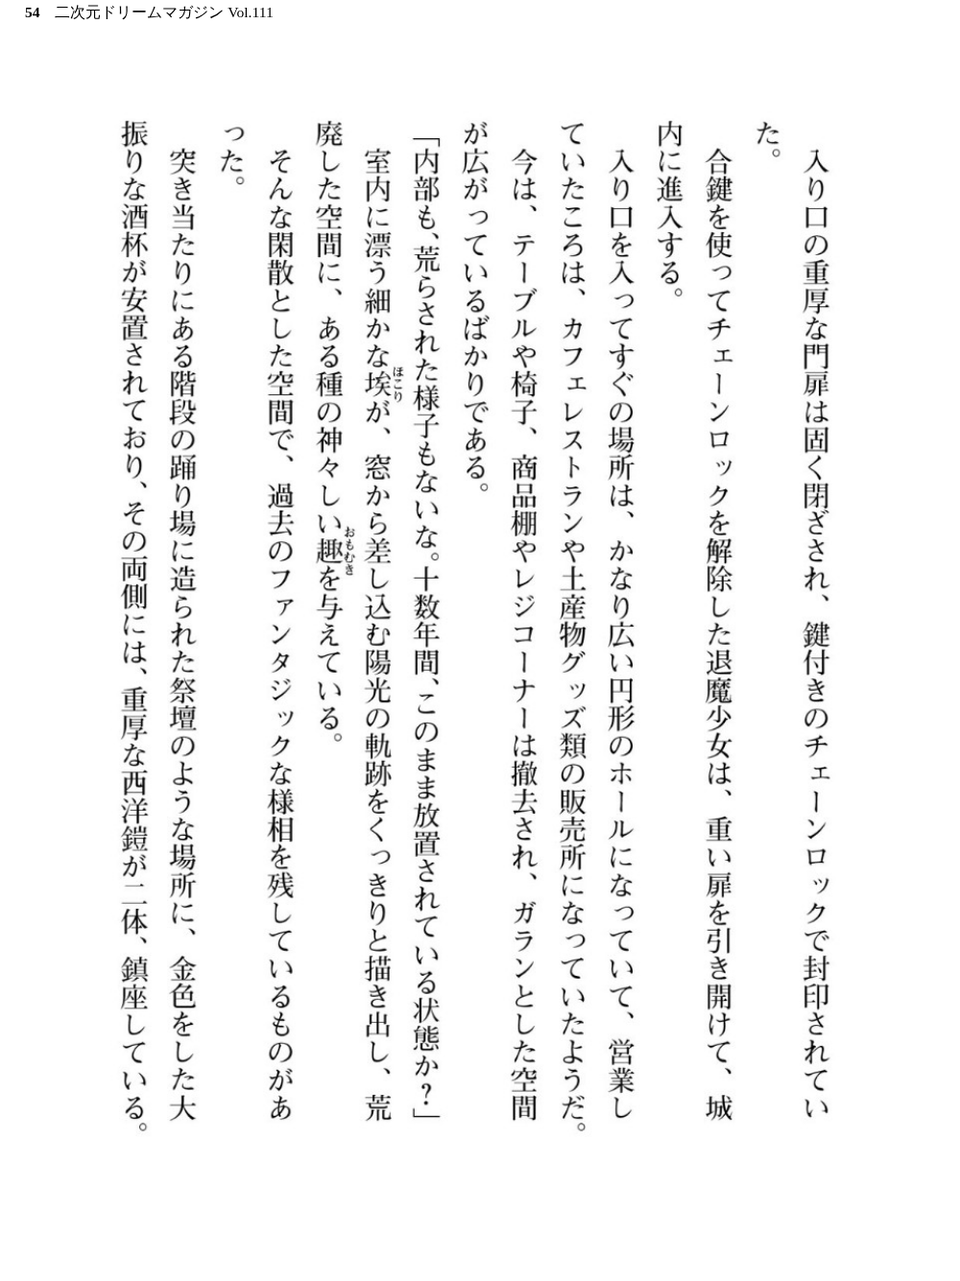 54 二次元ドリームマガジン Vol.111
　入り口の重厚な門扉は固く閉ざされ、鍵付きのチェーンロックで封印されてい
た。
　合鍵を使ってチェーンロックを解除した退魔少女は、重い扉を引き開けて、城
内に進入する。
　入り口を入ってすぐの場所は、かなり広い円形のホールになっていて、営業し
ていたころは、カフェレストランや土産物グッズ類の販売所になっていたようだ。
　今は、テーブルや椅子、商品棚やレジコーナーは撤去され、ガランとした空間
が広がっているばかりである。
「内部も、荒らされた様子もないな。十数年間、このまま放置されている状態か？」
　室内に漂う細かな埃ほこりが、窓から差し込む陽光の軌跡をくっきりと描き出し、荒
廃した空間に、ある種の神々しい趣おもむきを与えている。
　そんな閑散とした空間で、過去のファンタジックな様相を残しているものがあ
った。
　突き当たりにある階段の踊り場に造られた祭壇のような場所に、金色をした大
振りな酒杯が安置されており、その両側には、重厚な西洋鎧が二体、鎮座している。